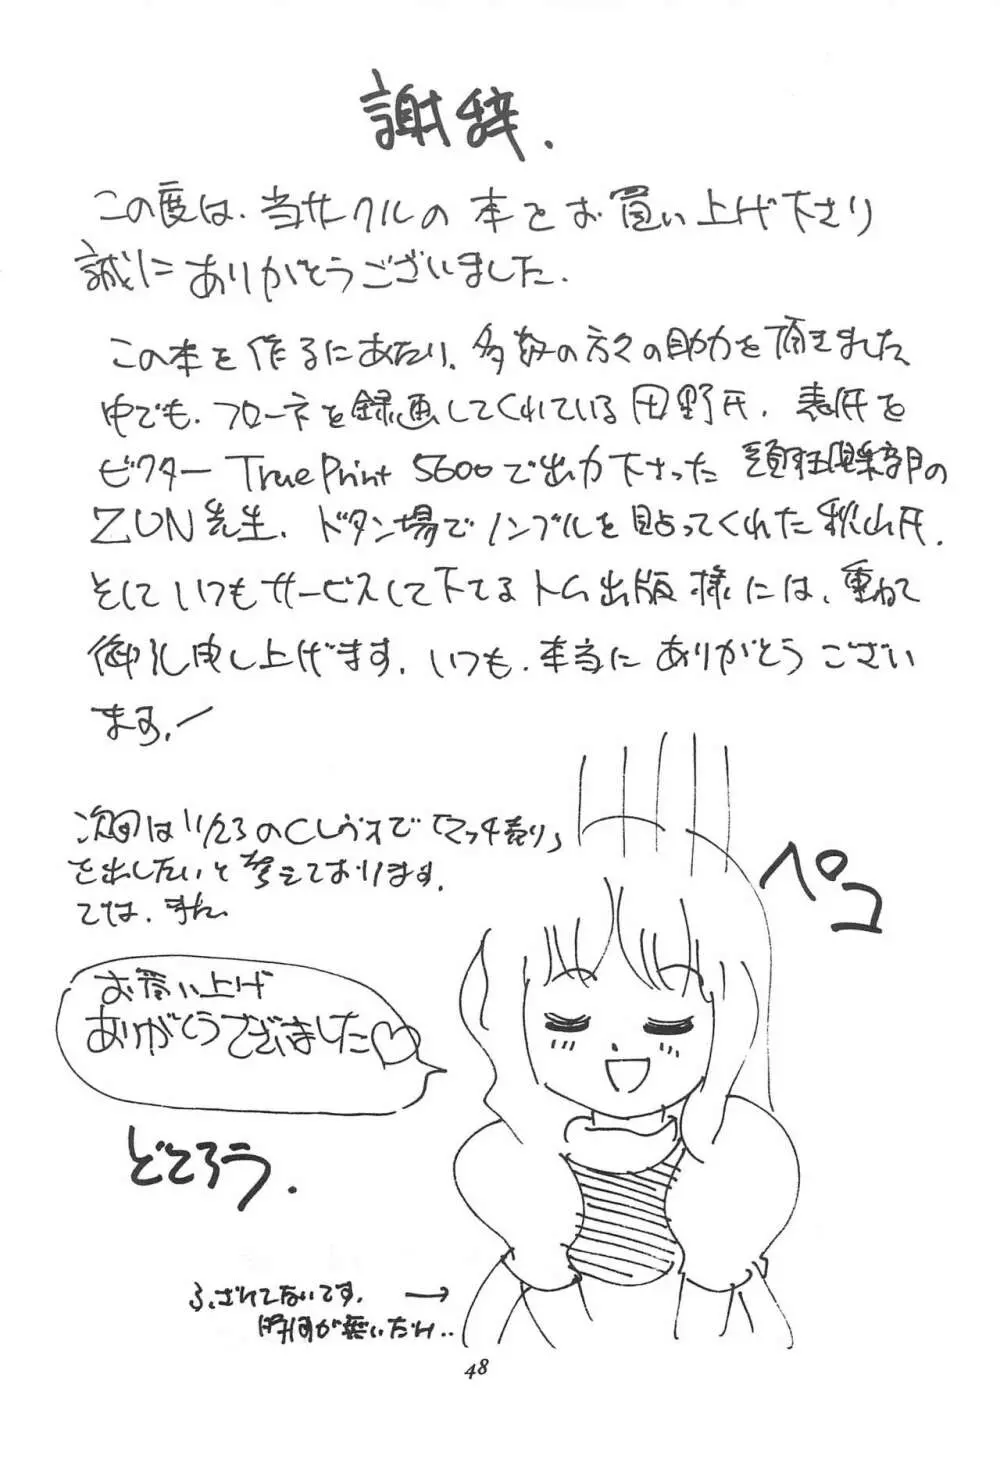 謝辞.
この度は、当サークルの本をお買い上げ下さり
誠にありがとうございました.
この本を作るにあたり、多数の方々の助力を頂きました
中でも、フローネを録画してくれている田野氏、表紙を
ビクター True Print 5600で出力下さった
ZUN先生、ドタン場でノンブルを貼ってくれた秋山氏、
そしていつもサービスして下てるトム出版様には、重ねて
御礼申し上げます. いつも、本当にありがとうござい
ます.
次回は11/23のCレヴォで「マッチ売り」
を出したいと考えております.
では、また.
ペコ
お買い上げ
ありがとうございました♡
どころう.
ふざけてないです.
時間が無いだけ..
48